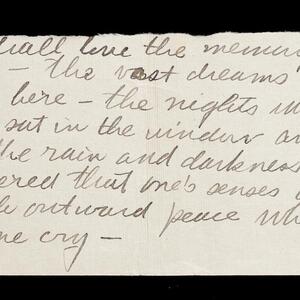 shall love the memor
— the vast dreams
here — the nights w
sat in the window a
the rain and darkness
ered that one's senses
outward peace wh
me cry —